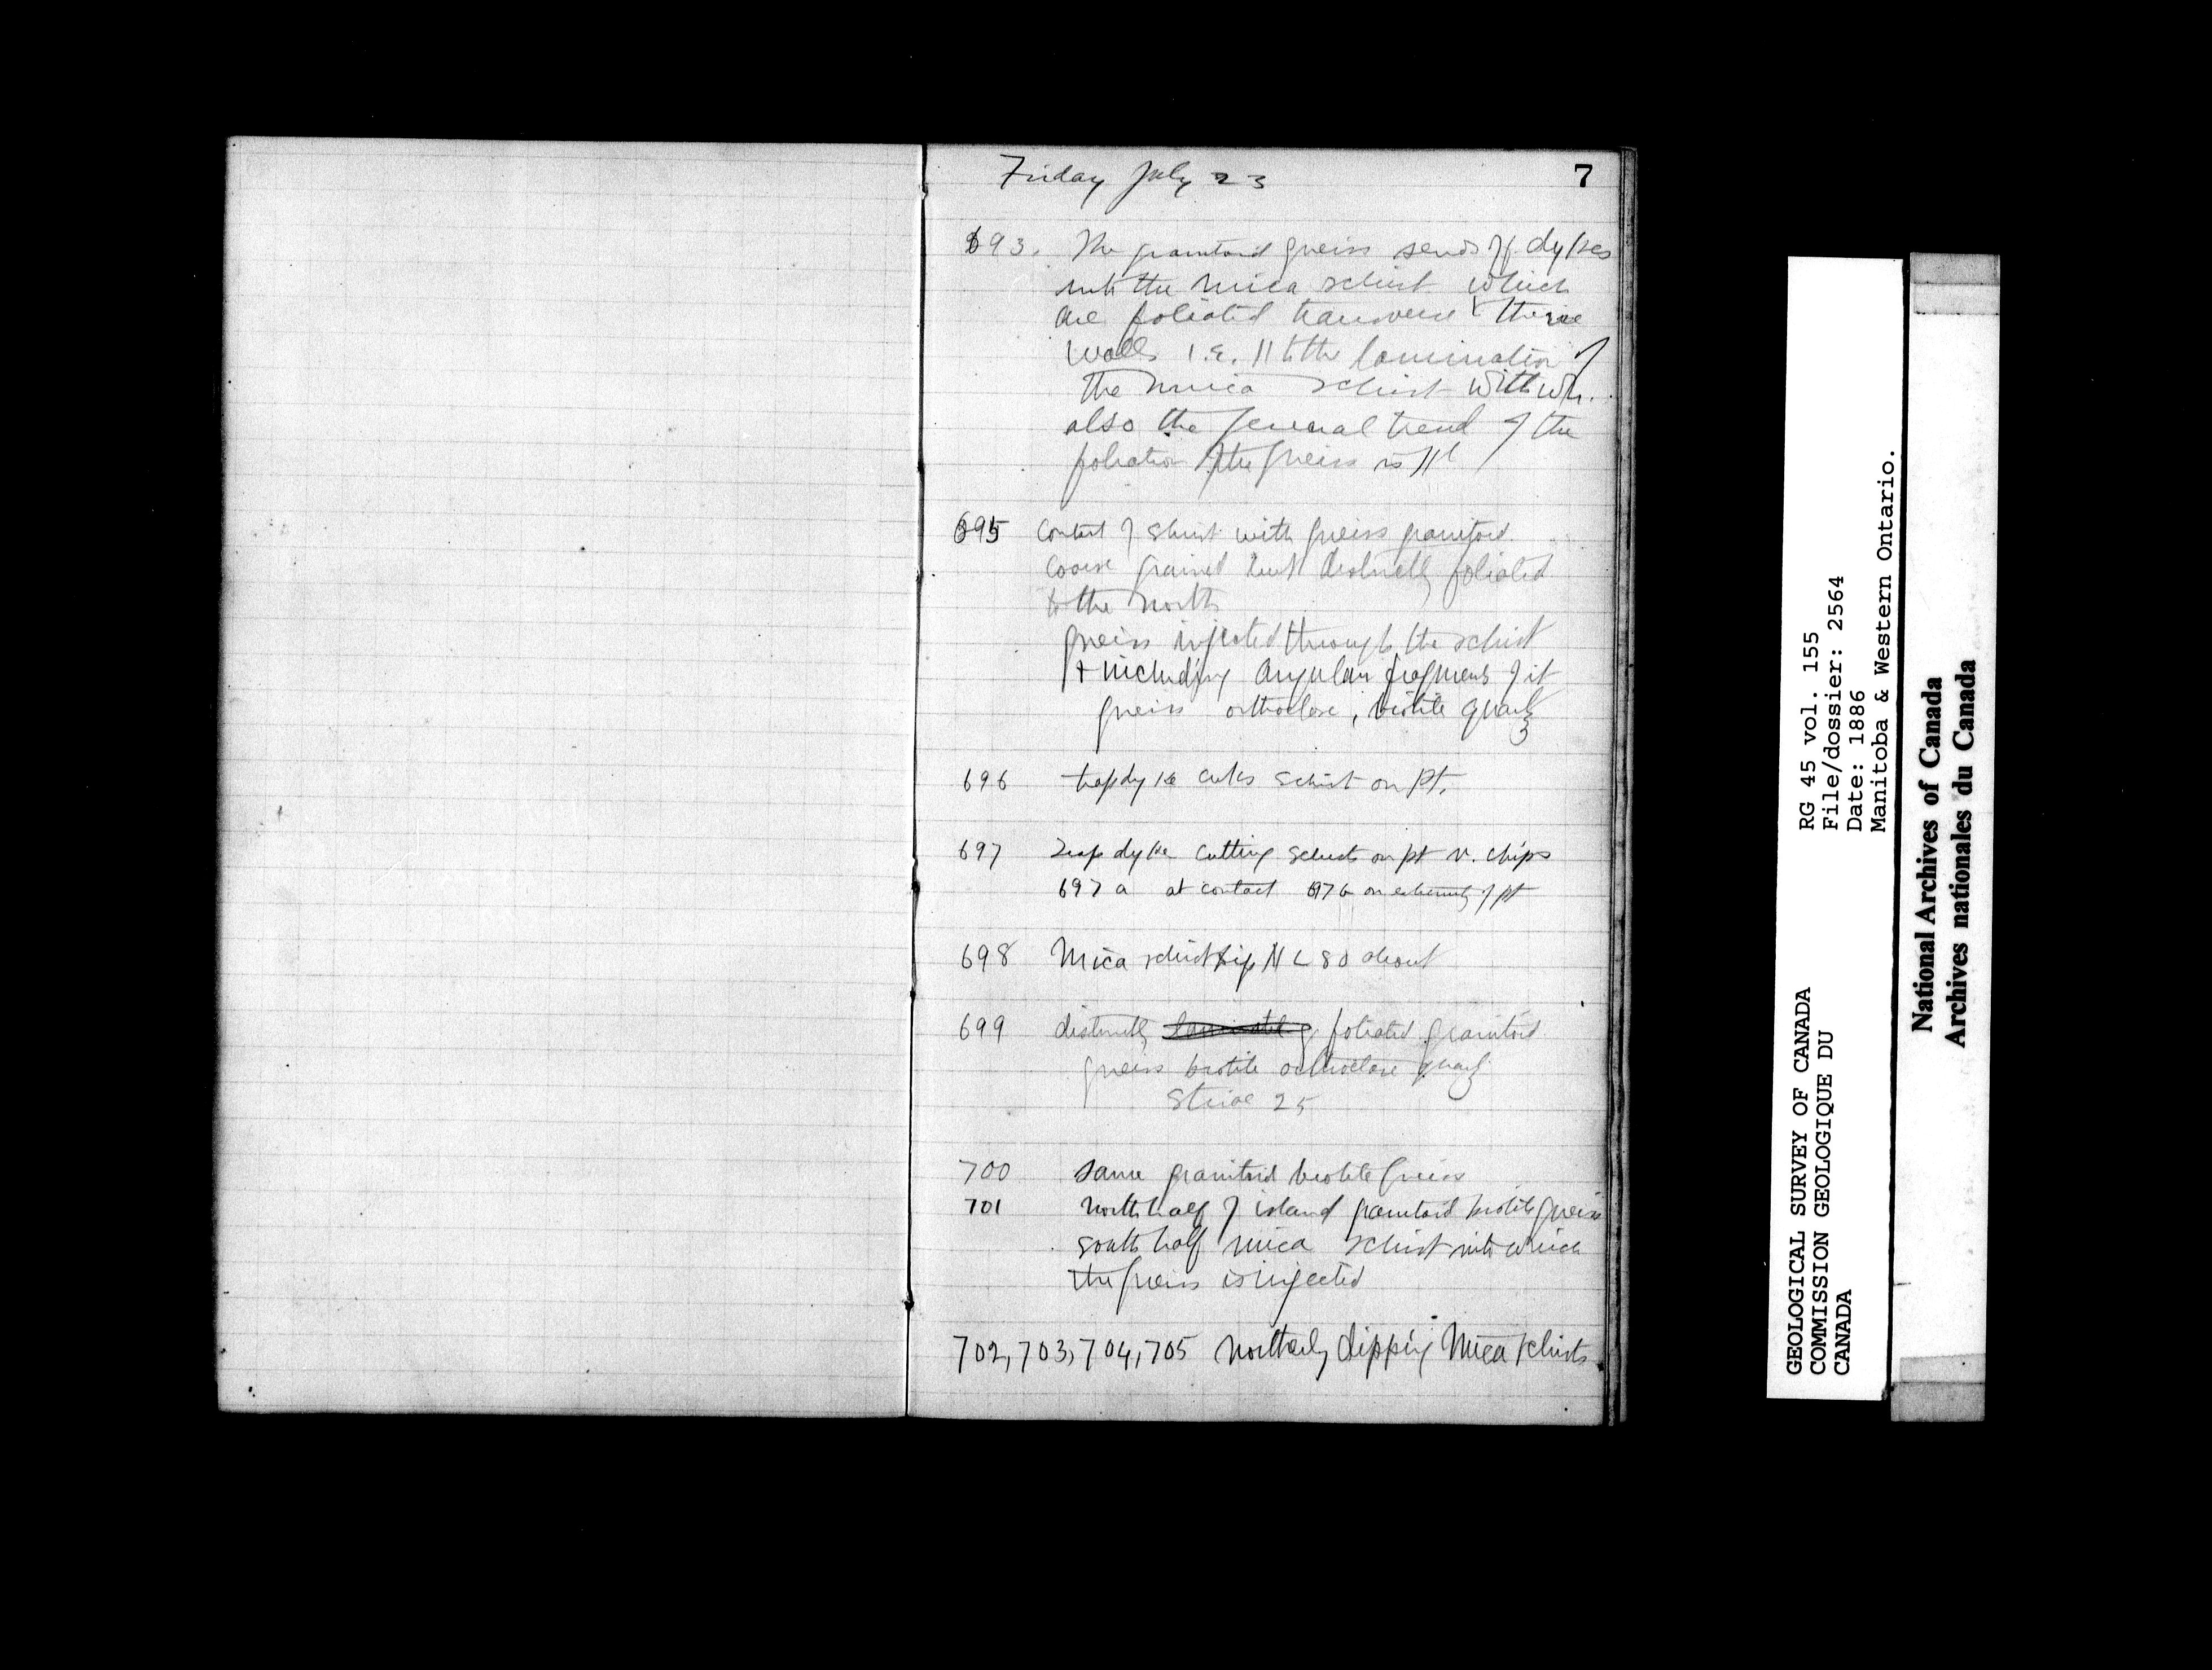 Friday July 23
7
693. The granitoid gneiss sends off dykes
into the mica schist which
are foliated transverse to their
walls i.e. || to the lamination of
the mica schist with wh.
also the general trend of the
foliation of the gneiss is ||l
695 Contact of schist with gneiss granitoid
coarse grained but distinctly foliated
to the north
gneiss injected through the schist
+ including angular fragments of it
gneiss orthoclase, biotite quartz
696 trap dyke cuts schist on pt.
697 trap dyke cutting schists on pt v. chips
697a at contact 697b on extremity of pt
698 Mica schist dip N ∠ 80 about
699 distinctly foliated granitoid
gneiss biotite orthoclase quartz
Striae 25
700 same granitoid biotite gneiss
701 north half of island granitoid biotite gneiss
south half mica schist into which
the gneiss is injected
702, 703, 704, 705 Northerly dipping Mica schists
GEOLOGICAL SURVEY OF CANADA
COMMISSION GEOLOGIQUE DU
CANADA
RG 45 vol. 155
File/dossier: 2564
Date: 1886
Manitoba & Western Ontario.
National Archives of Canada
Archives nationales du Canada